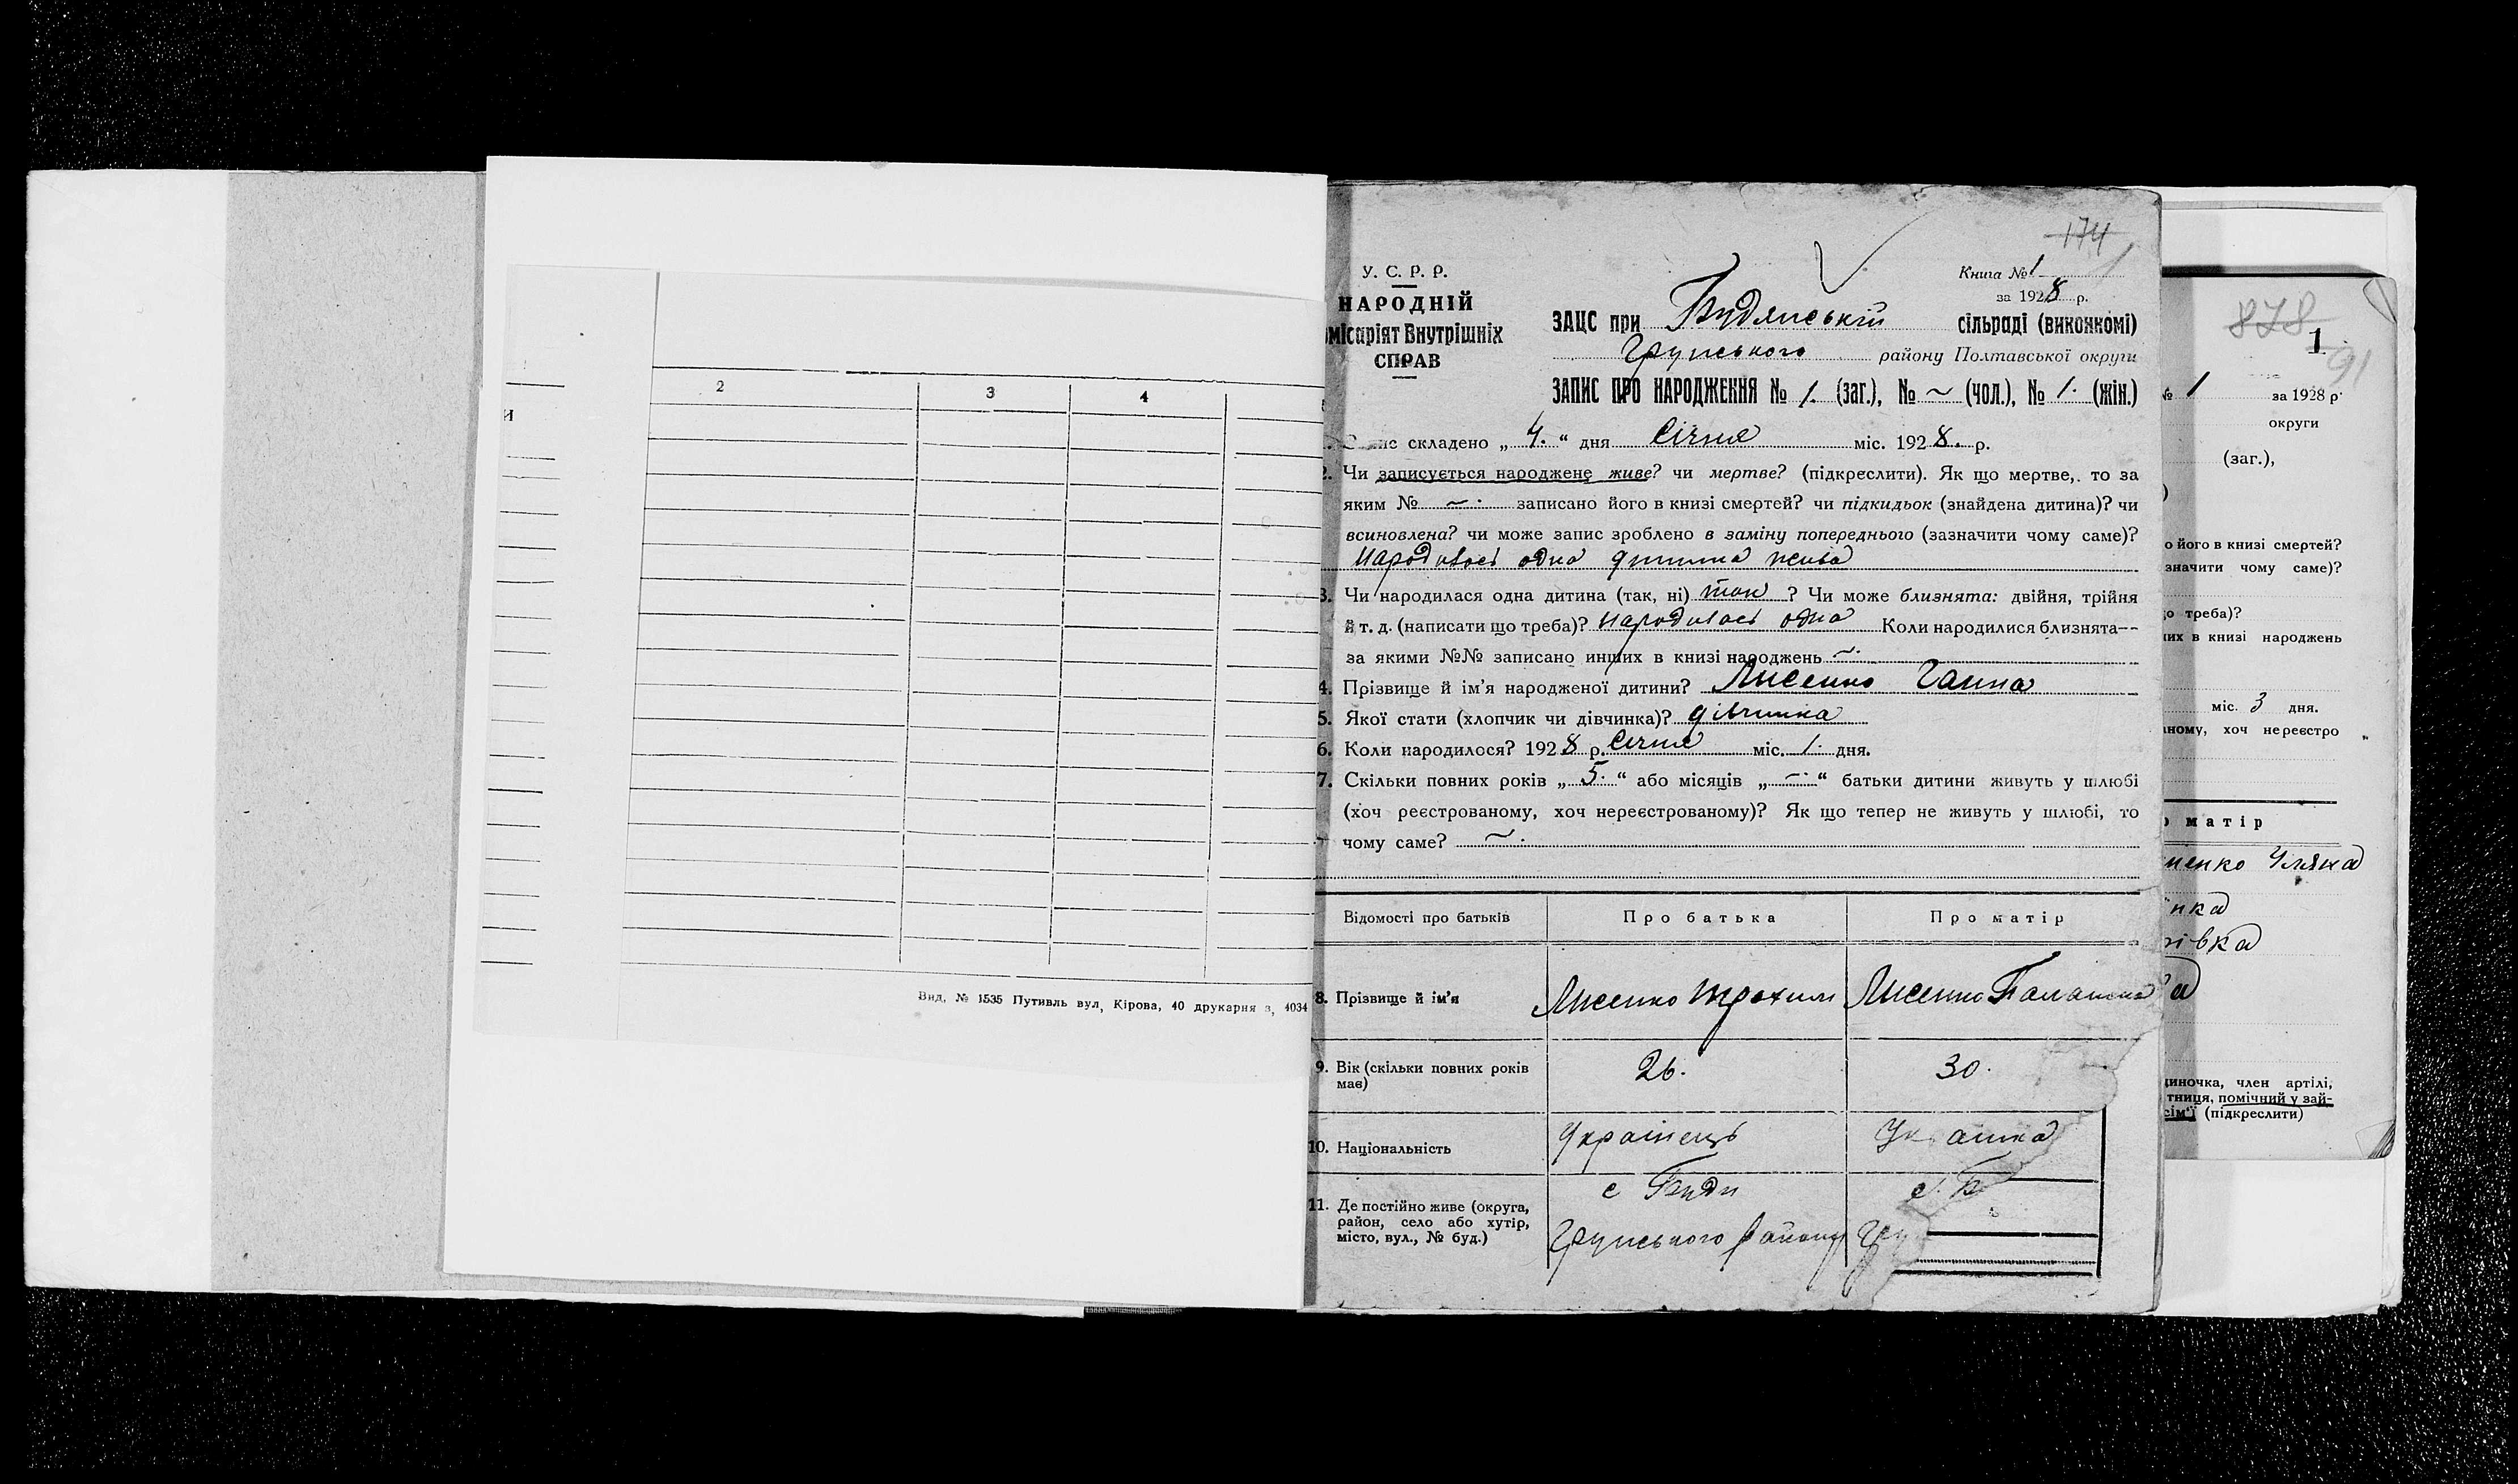 2 3 4
И
Вид. № 1535 Путивль вул, Кірова, 40 друкарня з, 4034
174
1
У. С. Р. Р.
НАРОДНІЙ
місаріят Внутрішніх
СПРАВ
Книга № 1
за 1928 р.
ЗАЦС при Будянській сільраді (виконкомі)
Грунського району Полтавської округи
ЗАПИС ПРО НАРОДЖЕННЯ № 1. (заг.), № ~ (чол.), № 1. (жін.)
складено „ 4. “ дня Січня міс. 1928. р.
2. Чи записується народжене живе? чи мертве? (підкреслити). Як що мертве,. то за
яким № ~. записано його в книзі смертей? чи підкидьок (знайдена дитина)? чи
всиновлена? чи може запис зроблено в заміну попереднього (зазначити чому саме)?
народилась одна дитина жива
3. Чи народилася одна дитина (так, ні) так ? Чи може близнята: двійня, трійня
й т. д. (написати що треба)? народилась одна Коли народилися близнята—
за якими №№ записано инших в книзі народжень ~.
4. Прізвище й ім'я народженої дитини? Лисенко Ганна
5. Якої стати (хлопчик чи дівчинка)? дівчинка
6. Коли народилося? 1928 р. Січня міс. 1. дня.
7. Скільки повних років „ 5. “ або місяців „ —. “ батьки дитини живуть у шлюбі
(хоч реєстрованому, хоч нереєстрованому)? Як що тепер не живуть у шлюбі, то
чому саме? ~.
Відомості про батьків Про батька Про матір
8. Прізвище й ім'я Лисенко Трохим Лисенко Паланена
9. Вік (скільки повних років
має) 26. 30.
10. Національність Українець Ук аінка
11. Де постійно живе (округа,
район, село або хутір,
місто, вул., № буд.)
с Буди с. Б
Грунського району Гру
878
1
91
№ 1 за 1928 р.
округи
(заг.),
)
о його в книзі смертей?
значити чому саме)?
о треба)?
их в книзі народжень
міс. 3 дня.
ному, хоч нереєстро
о матір
ненко Уляна
нка
рівка
а
диночка, член артілі,
тниця, помічний у зай-
сім'ї (підкреслити)